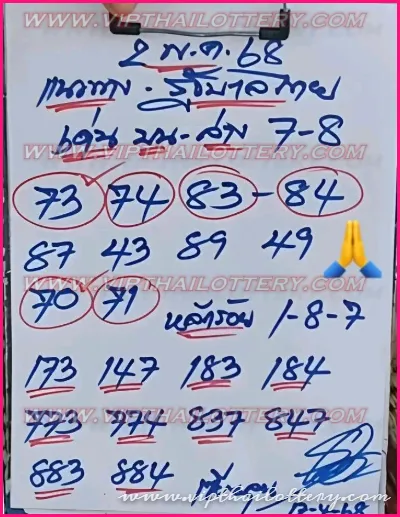 WWW.VIPTHAILOTTERY.COM
2 พ.ค. 68
แนวทาง - รัฐบาลไทย
เด่น บน - ล่าง 7-8
73 74 83 - 84
87 43 89 49
70 71 หลักร้อย 1-8-7
173 147 183 184
773 774 837 847
883 884
www.vipthailottery.com